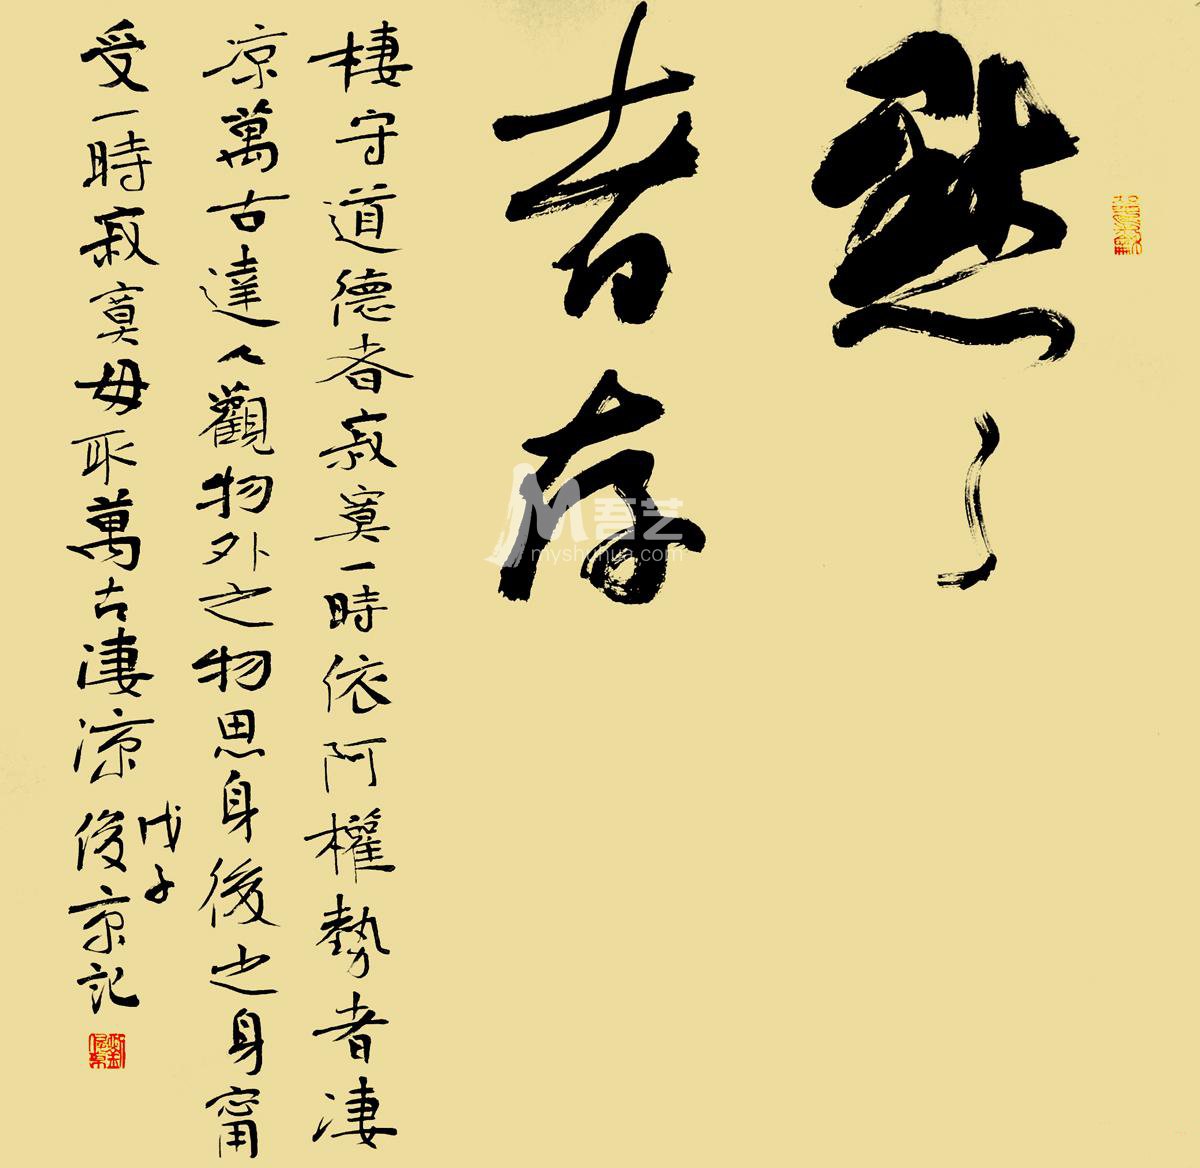 默々
者存
棲守道德者寂寞一時依阿權勢者淒
涼萬古達人觀物外之物思身後之身甯
受一時寂寞毋取萬古淒涼
戊子
俊京記
劉俊京
吾艺
myshuhua.com